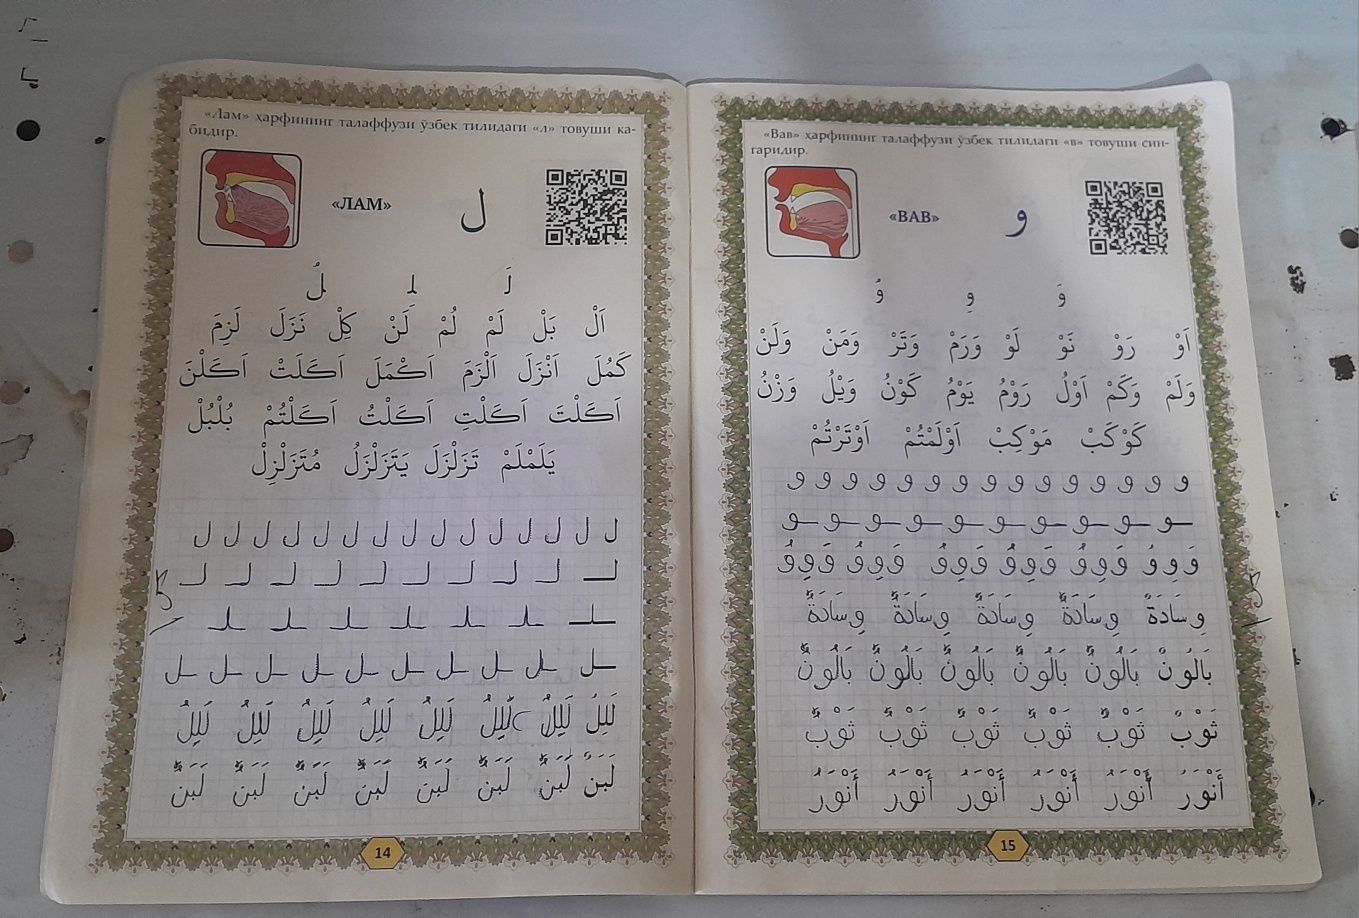 «Лам» ҳарфининг талаффузи ўзбек тилидаги «л» товуши ка-
бидир.
«ЛАМ» ل
لَ لِ لُ
اَلْ بَلْ لَمْ لُمْ لَنْ كِلْ نَزَلَ لَزِمَ
كَمُلَ اَنْزَلَ اَلْزَمَ اَكْمَلَ اَكَلَتْ اَكَلْنَ
اَكَلْتَ اَكَلْتِ اَكَلْتُ اَكَلْتُمْ بُلْبُلْ
يَلَمْلَمْ تَزَلْزَلَ يَتَزَلْزَلُ مُتَزَلْزِلْ
ل ل ل ل ل ل ل ل ل ل ل ل ل ل ل
لـ لـ لـ لـ لـ لـ لـ لـ لـ لـ
ـلـ ـلـ ـلـ ـلـ ـلـ ـلـ ـلـ
ـل ـل ـل ـل ـل ـل ـل ـل ـل ـل
لَلِلُ لَلِلُ لَلِلُ لَلِلُ لَلِلُ لَلِلُ لَلِلُ لَلِلُ
لَبَنٌ لَبَنٌ لَبَنٌ لَبَنٌ لَبَنٌ لَبَنٌ لَبَنٌ لَبَنٌ
14
«Вав» ҳарфининг талаффузи ўзбек тилидаги «в» товуши син-
гаридир.
«ВАВ» و
وَ وِ وُ
اَوْ رَوْ نَوْ لَوْ وَرَمْ وَتَرْ وَمَنْ وَلَنْ
وَلَمْ وَكَمْ اَوْلُ رَوْمُ يَوْمُ كَوْنُ وَيْلُ وَزْنُ
كَوْكَبْ مَوْكِبْ اَوْلَمْتُمْ اَوْتَرْتُمْ
و و و و و و و و و و و و و و و
ـو ـو ـو ـو ـو ـو ـو ـو ـو ـو
وَوِوُ وَوِوُ وَوِوُ وَوِوُ وَوِوُ وَوِوُ
وِسَادَةٌ وِسَادَةٌ وِسَادَةٌ وِسَادَةٌ وِسَادَةٌ
بَالُونٌ بَالُونٌ بَالُونٌ بَالُونٌ بَالُونٌ بَالُونٌ
ثَوْبٌ ثَوْبٌ ثَوْبٌ ثَوْبٌ ثَوْبٌ ثَوْبٌ
أَنْوَرُ أَنْوَرُ أَنْوَرُ أَنْوَرُ أَنْوَرُ أَنْوَرُ
15